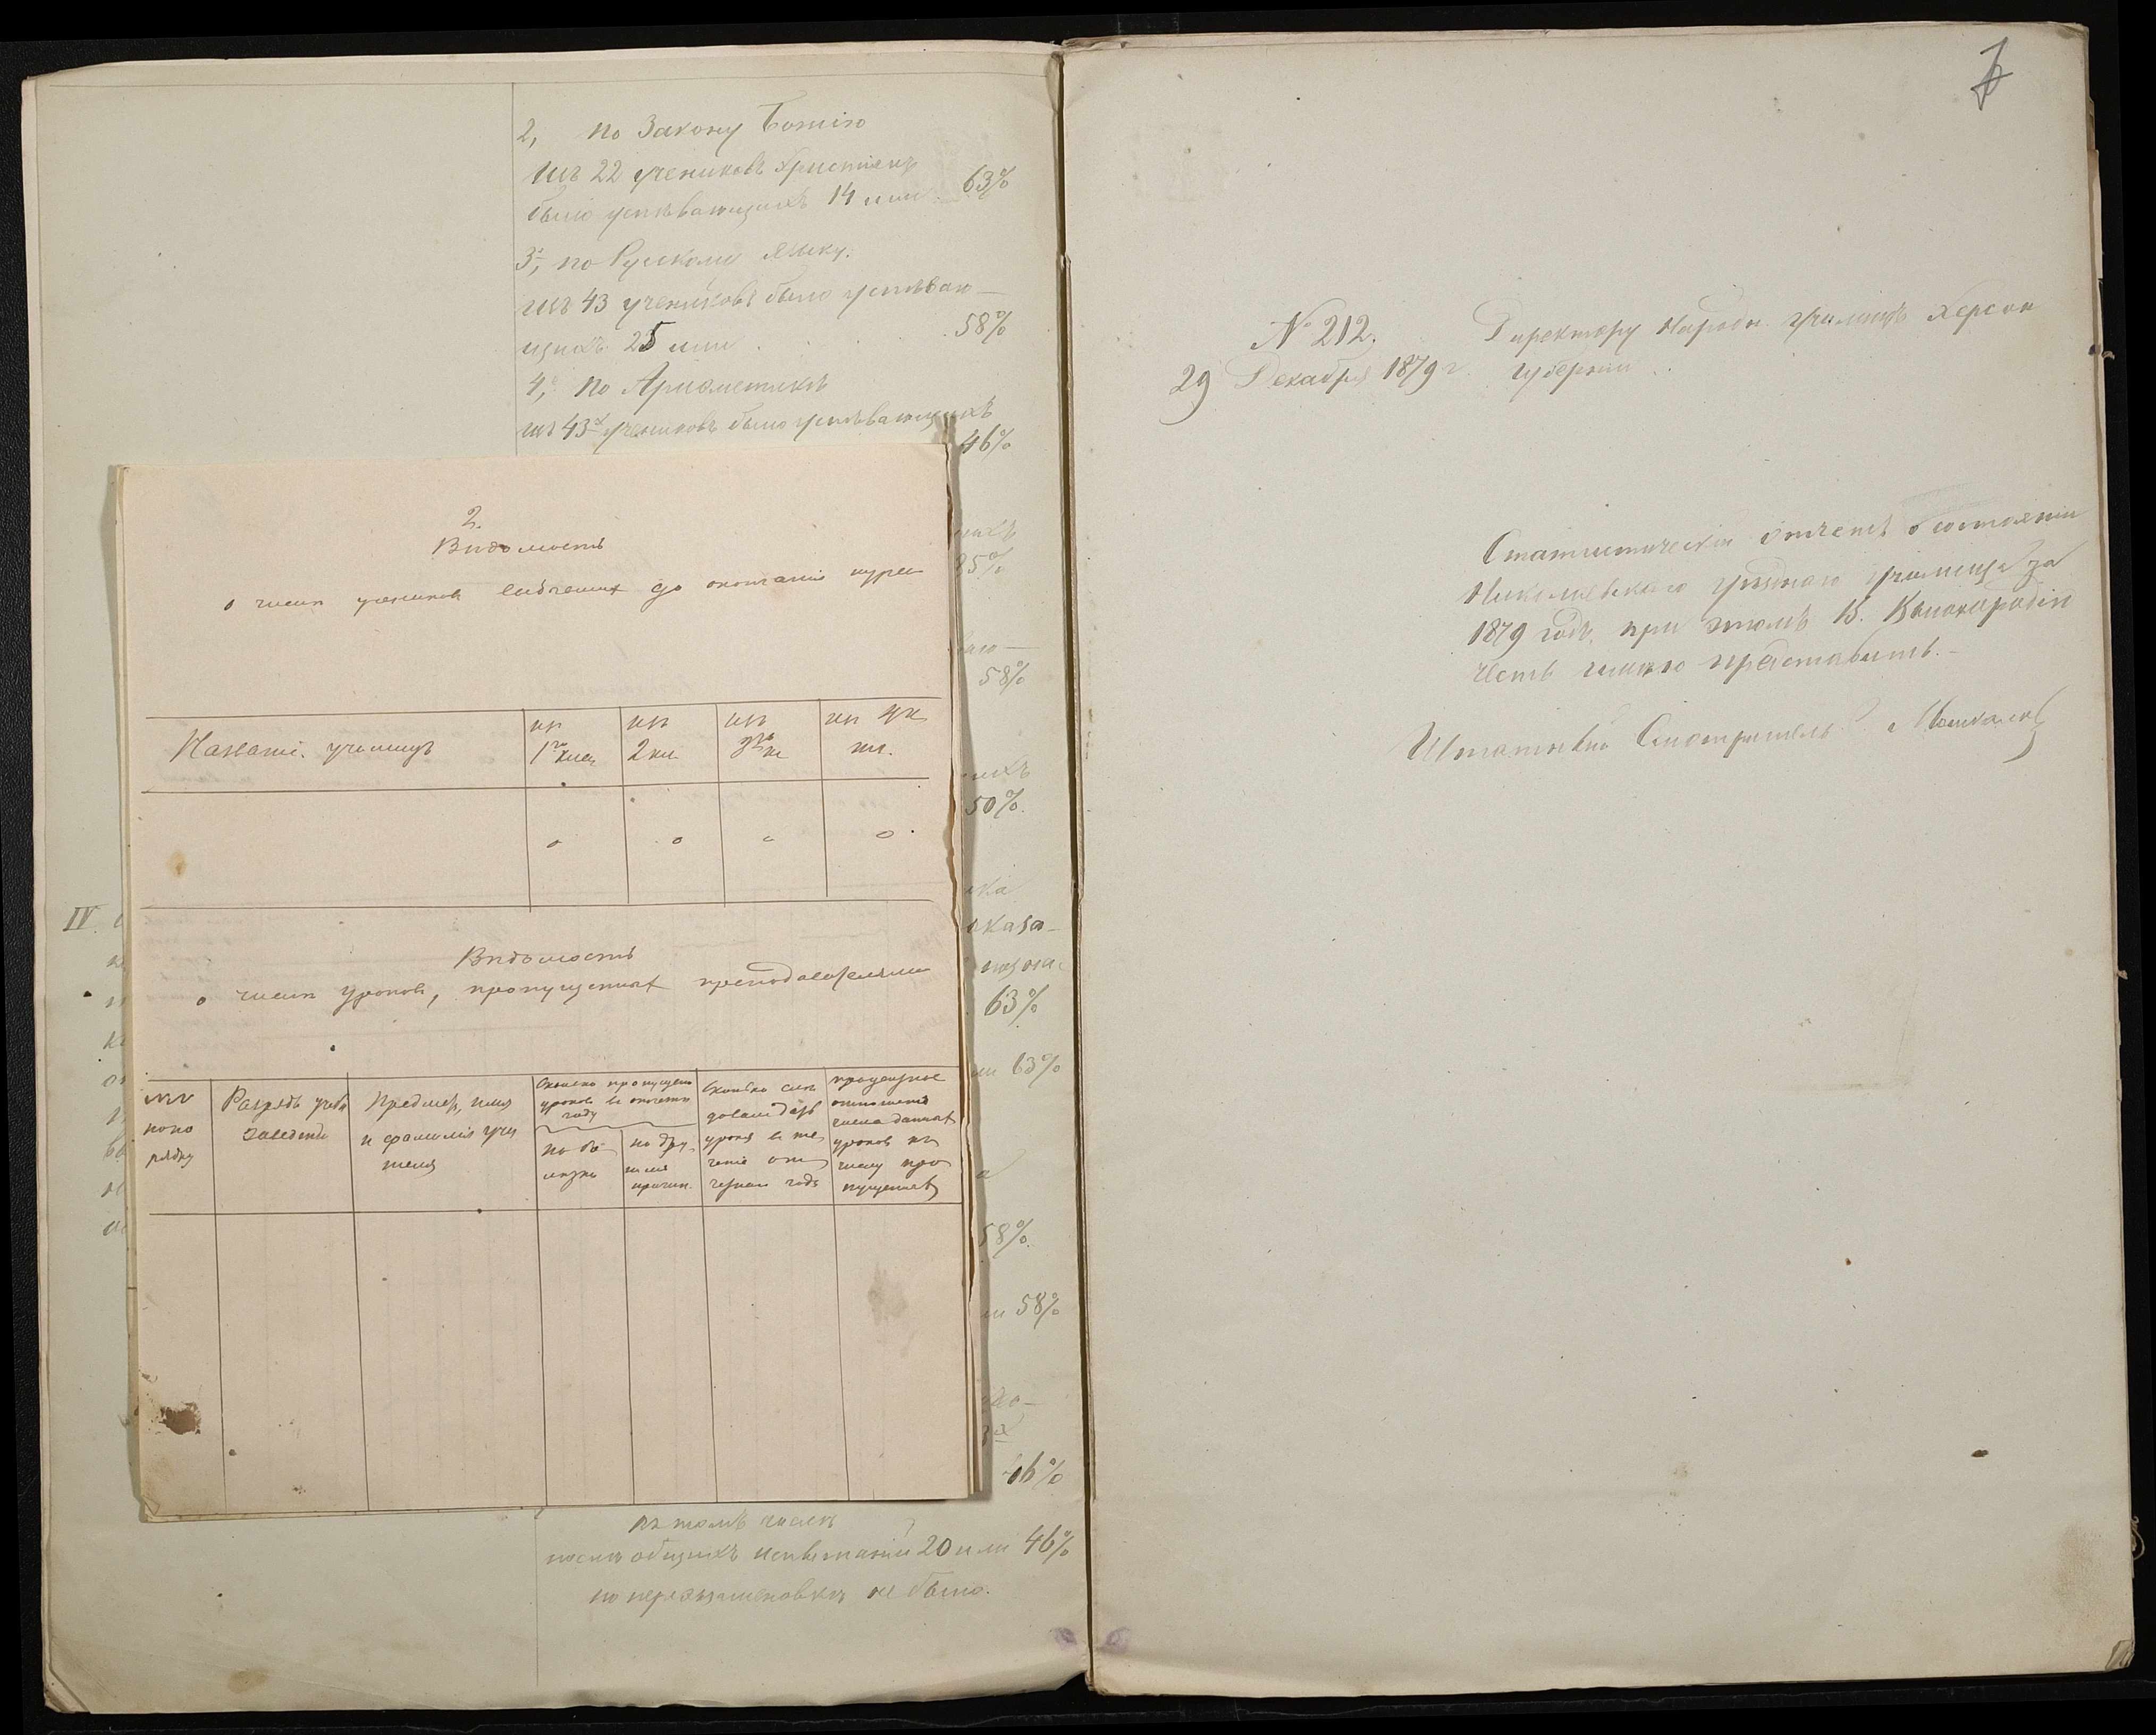 2, по Закону Божію
изъ 22 учениковъ христіанъ
было успѣвающихъ 14 или 63%
3, по Русскому языку.
изъ 43 учениковъ было успѣваю-
щихъ 25 или . . . . 58%
4, по Ариѳметикѣ
изъ 43х учениковъ было успѣвающихъ
46%
2.
Вѣдомость
о числѣ учениковъ выбывшихъ до окончанія курса
Названі. училищъ
изъ 1го клас
изъ 2 кл.
изъ 3го кл
изъ
кл.
Вѣдомость
о числѣ уроковъ, пропущенныхъ преподавателями
по по рядку
Разрядъ учебн заведенія
Предметъ, имя и фамилія учи теля
Сколько пропущено уроковъ въ отчетн году
по бо лѣзни
по дру гимъ причин.
Сколько
уроковъ въ те ченіе отчетнаго года
процентное отношеніе числа данныхъ уроковъ къ числу про пущенныхъ
85%
58%
50%.
IV
оказа-
63%
или 63%
58%.
или 58%
46%
въ томъ числѣ
послѣ общихъ испытаній 20 или 46%
по переэкзаменовкѣ не было.
7
№ 212.
29 Декабря 1879 г.
Директору Народн. училищъ Херсон
губерніи
Статистическій отчетъ о состояніи
Николаевскаго уѣзднаго училища за
1879 годъ, при этомъ В. Высокородію
честь имѣю представить.-
Штатный Смотритель